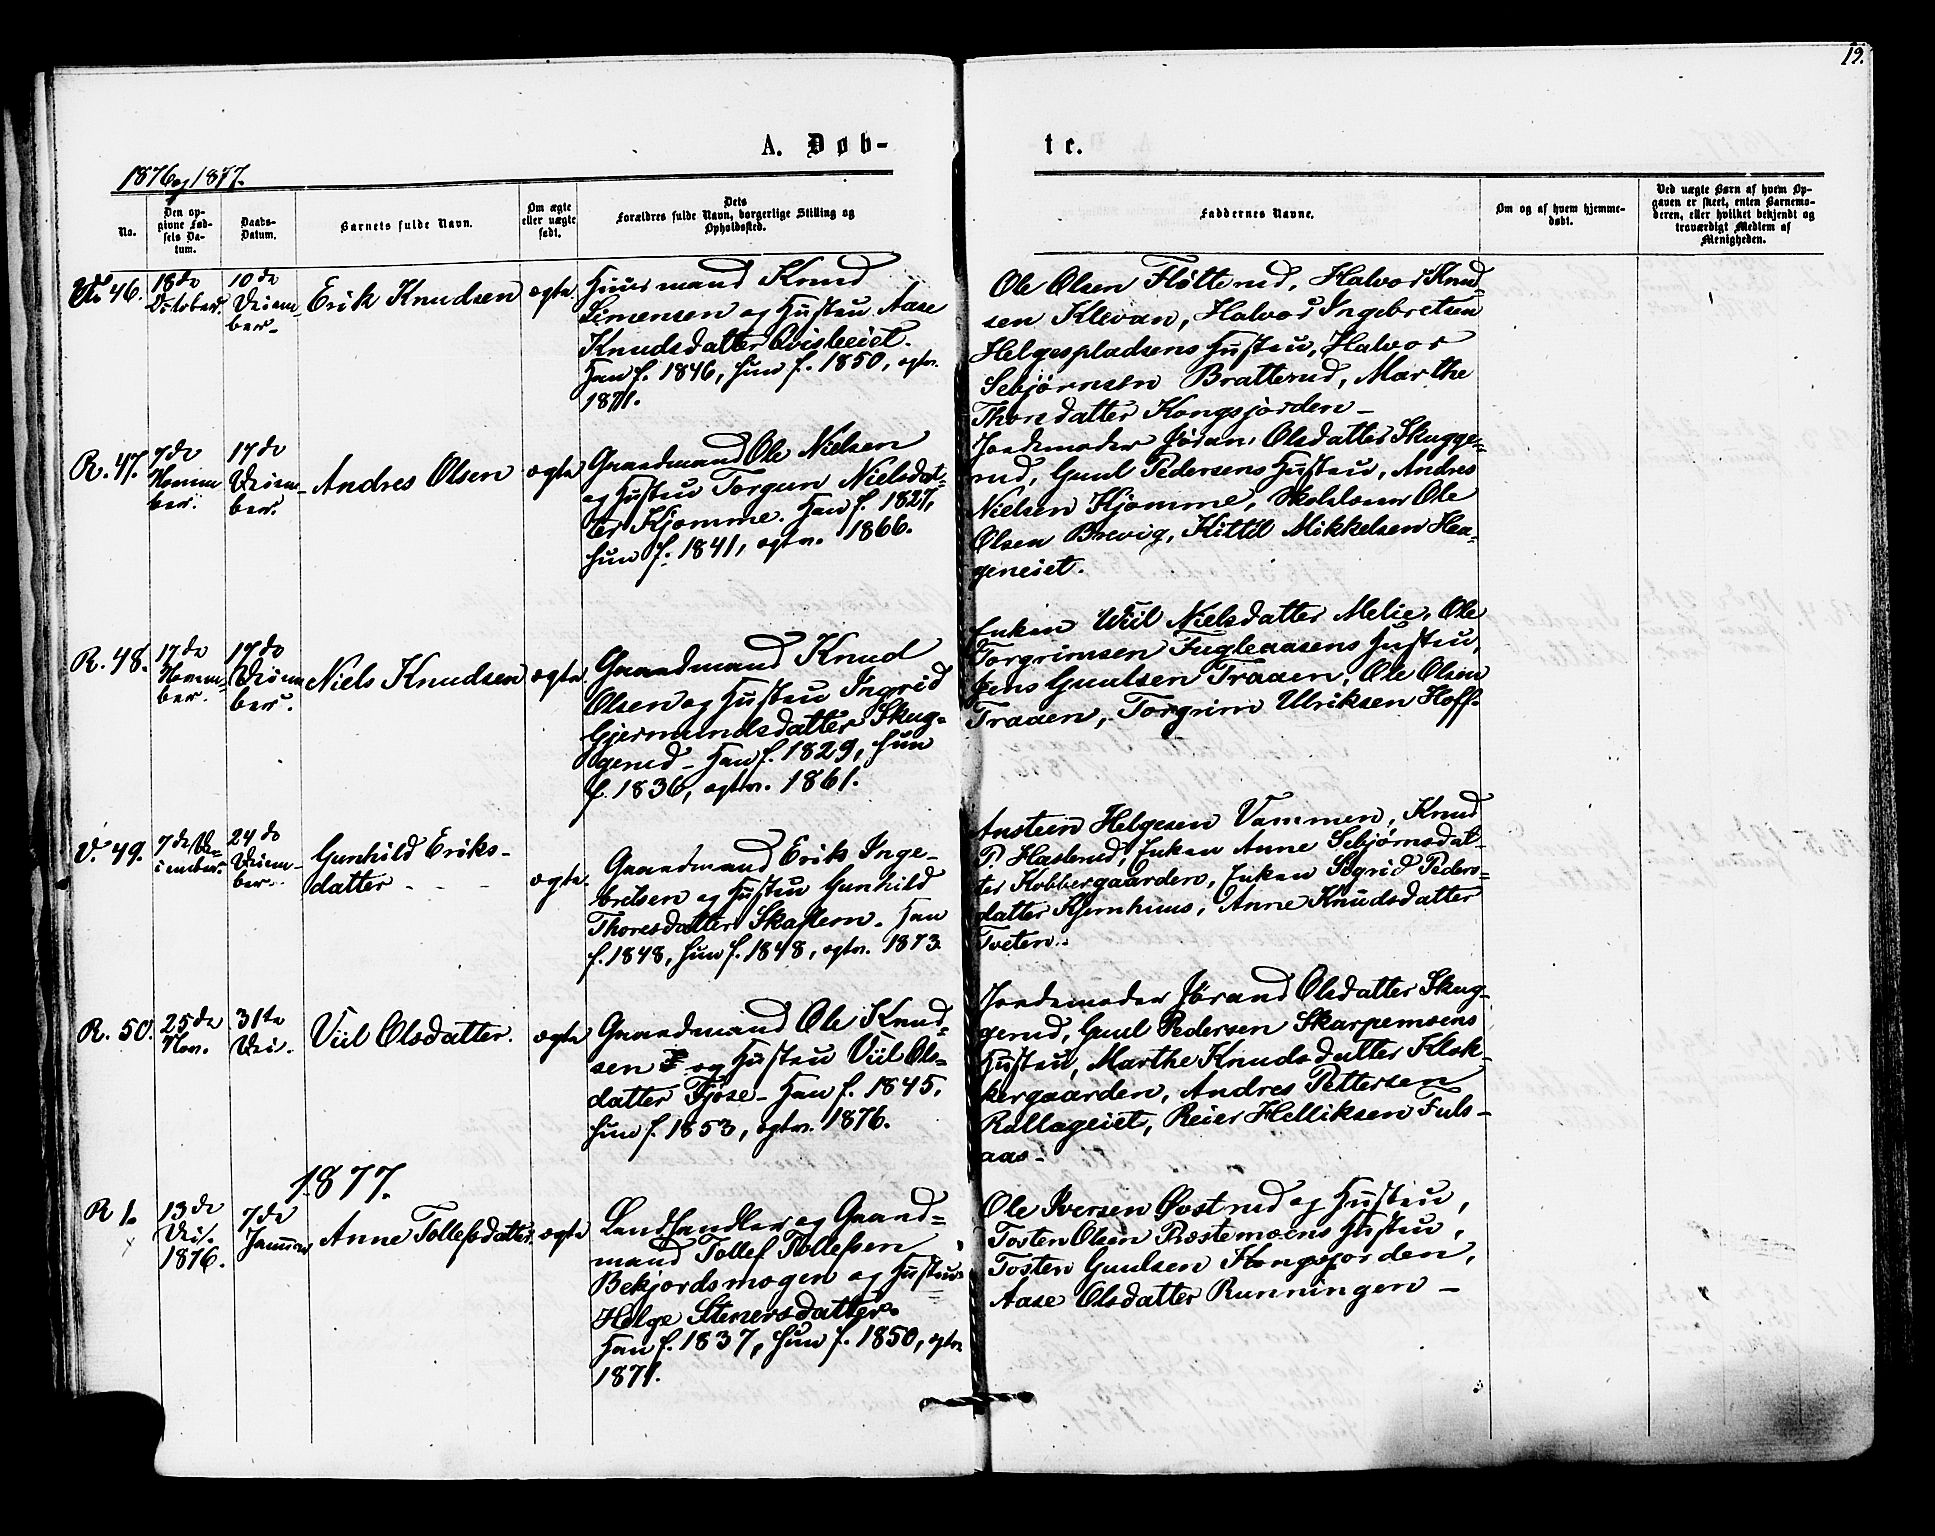 19.
A. Døb-
te.
1876 og 1877.
No.
Den op-
givne Fød-
sels Da-
tum.
Daabs-
Datum.
Barnets fulde Navn.
Om ægte
eller uægte
født.
Dets
Forældres fulde Navn, borgerlige Stilling og
Opholdssted.
Faddernes Navne.
Om og af hvem hjemme-
døbt.
Ved uægte Børn af hvem Op-
gaven er skeet, enten Barnemo-
deren, eller hvilket bekjendt og
troværdigt Medlem af
Menigheden.
46.
18de
October.
10de
Decem-
ber.
Erik Knudsen
ægte.
Huusmand Knud
Simensen og Hustru Aase
Knudsdatter
Han f. 1846, hun f. 1850, egtv.
1871.
Ole Olsen Fløtterud, Halvor Knud-
sen Klevan, Halvor Ingebretsen
Helgespladsens Hustru, Halvor
Sebjørnsen Bratterud, Marthe
Thorsdatter Kongsjorden -
R. 47.
7de
Novem-
ber.
17de
Decem-
ber.
Andres Olsen
ægte
Gaardmand Ole Nielsen
og Hustru Torgun Nielsdat-
ter Kjomme. Han f. 1827,
hun f. 1841, egtv. 1866.
Jordemoder Jøran Olsdatter Skugge-
rud, Guul Pedersens Hustru, Andres
Nielsen Kjomme, Skolelærer Ole
Olsen Brevig, Kittil Mikkelsen Haa-
geneiet.
R. 48.
17de
Novem-
ber.
17de
Decem-
ber.
Niels Knudsen
ægte
Gaardmand Knud
Olsen og Hustru Ingrid
Gjermundsdatter Skug-
gerud - Han f. 1829, hun
f. 1836, egtv. 1861.
Enken Viil Nielsdatter Melie, Ole
Torgrimsen Fugleaasens Hustru,
Jens Guulsen Traaen, Ole Olsen
Traaen, Torgrim Ulriksen Hoff-
V. 49.
7de De-
cember.
24de
Decem-
ber.
Gunhild Eriks-
datter
ægte.
Gaardmand Erik Inge-
bretsen og Hustru Gunhild
Thoresdatter Skaflem. Han
f. 1848, hun f. 1848, egtv. 1873.
Ansteen Helgesen Vammen, Knud
P. Haslerud, Enken Anne Sebjørnsdat-
ter Kobbergaarden, Enken Sigrid Peders-
datter Kjernhuus, Anne Knudsdatter
Tveten.
R. 50.
25de
Nov.
31te
Dec.
Viil Olsdatter.
ægte
Gaardmand Ole Knud-
sen og Hustru Viil Ols-
datter Fjøse - Han f. 1845,
hun f. 1853, egtv. 1876.
Jordemoder Jørand Olsdatter Skug-
gerud, Guul Pedersen Skarpemoens
Hustru, Marthe Knudsdatter Klok-
kergaarden, Andres Pettersen
Rallageiet, Reier Helliksen Fuls-
aas -
1877.
R 1.
13de
Dec.
1876.
7de
Januar
Anne Tollefsdatter
ægte
Landhandler og Gaard-
mand Tollef Tollefsen
Bekjordsmogen og Hustru
Helge Stenersdatter.
Han f. 1837, hun f. 1850, egtv.
1871.
Ole Iversen Øvstrud og Hustru,
Tosten Olsen Prestemoens Hustru,
Tosten Guulsen Kongsjorden,
Aase Olsdatter Runningen -